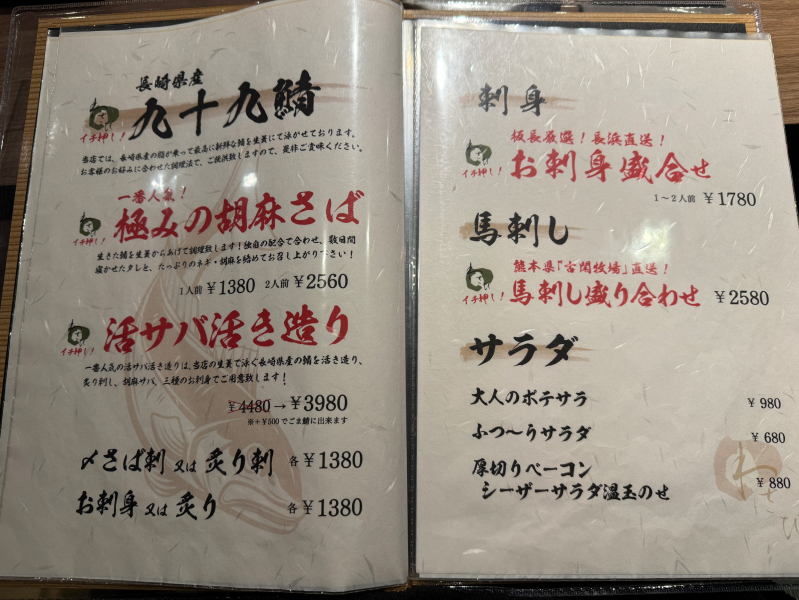 長崎県産
九十九鯖
イチ押し!
当店では、長崎県産の脂が乗って最高に新鮮な鯖を生簀にて泳がせております。
お客様のお好みに合わせた調理法で、ご提供致しますので、是非ご賞味ください。
一番人気!
極みの胡麻さば
イチ押し!
生きた鯖を生簀からあげて調理致します!独自の配合で合わせ、数日間
寝かせたタレと、たっぷりのネギ・胡麻を絡めてお召し上がり下さい!
1人前 ¥1380 2人前 ¥2560
活サバ活き造り
イチ押し!
一番人気の活サバ活き造りは、当店の生簀で泳ぐ長崎県産の鯖を活き造り、
炙り刺し、胡麻サバ、三種のお刺身でご用意致します!
¥4480→¥3980
※+¥500でごま鯖に出来ます
〆さば刺 又は 炙り刺 各¥1380
お刺身 又は 炙り 各¥1380
刺身
板長厳選!長浜直送!
お刺身盛合せ
イチ押し!
1〜2人前 ¥1780
馬刺し
熊本県「古閑牧場」直送!
馬刺し盛り合わせ ¥2580
イチ押し!
サラダ
大人のポテサラ ¥980
ふつ〜うサラダ ¥680
厚切りベーコン
シーザーサラダ温玉のせ ¥880
わさび